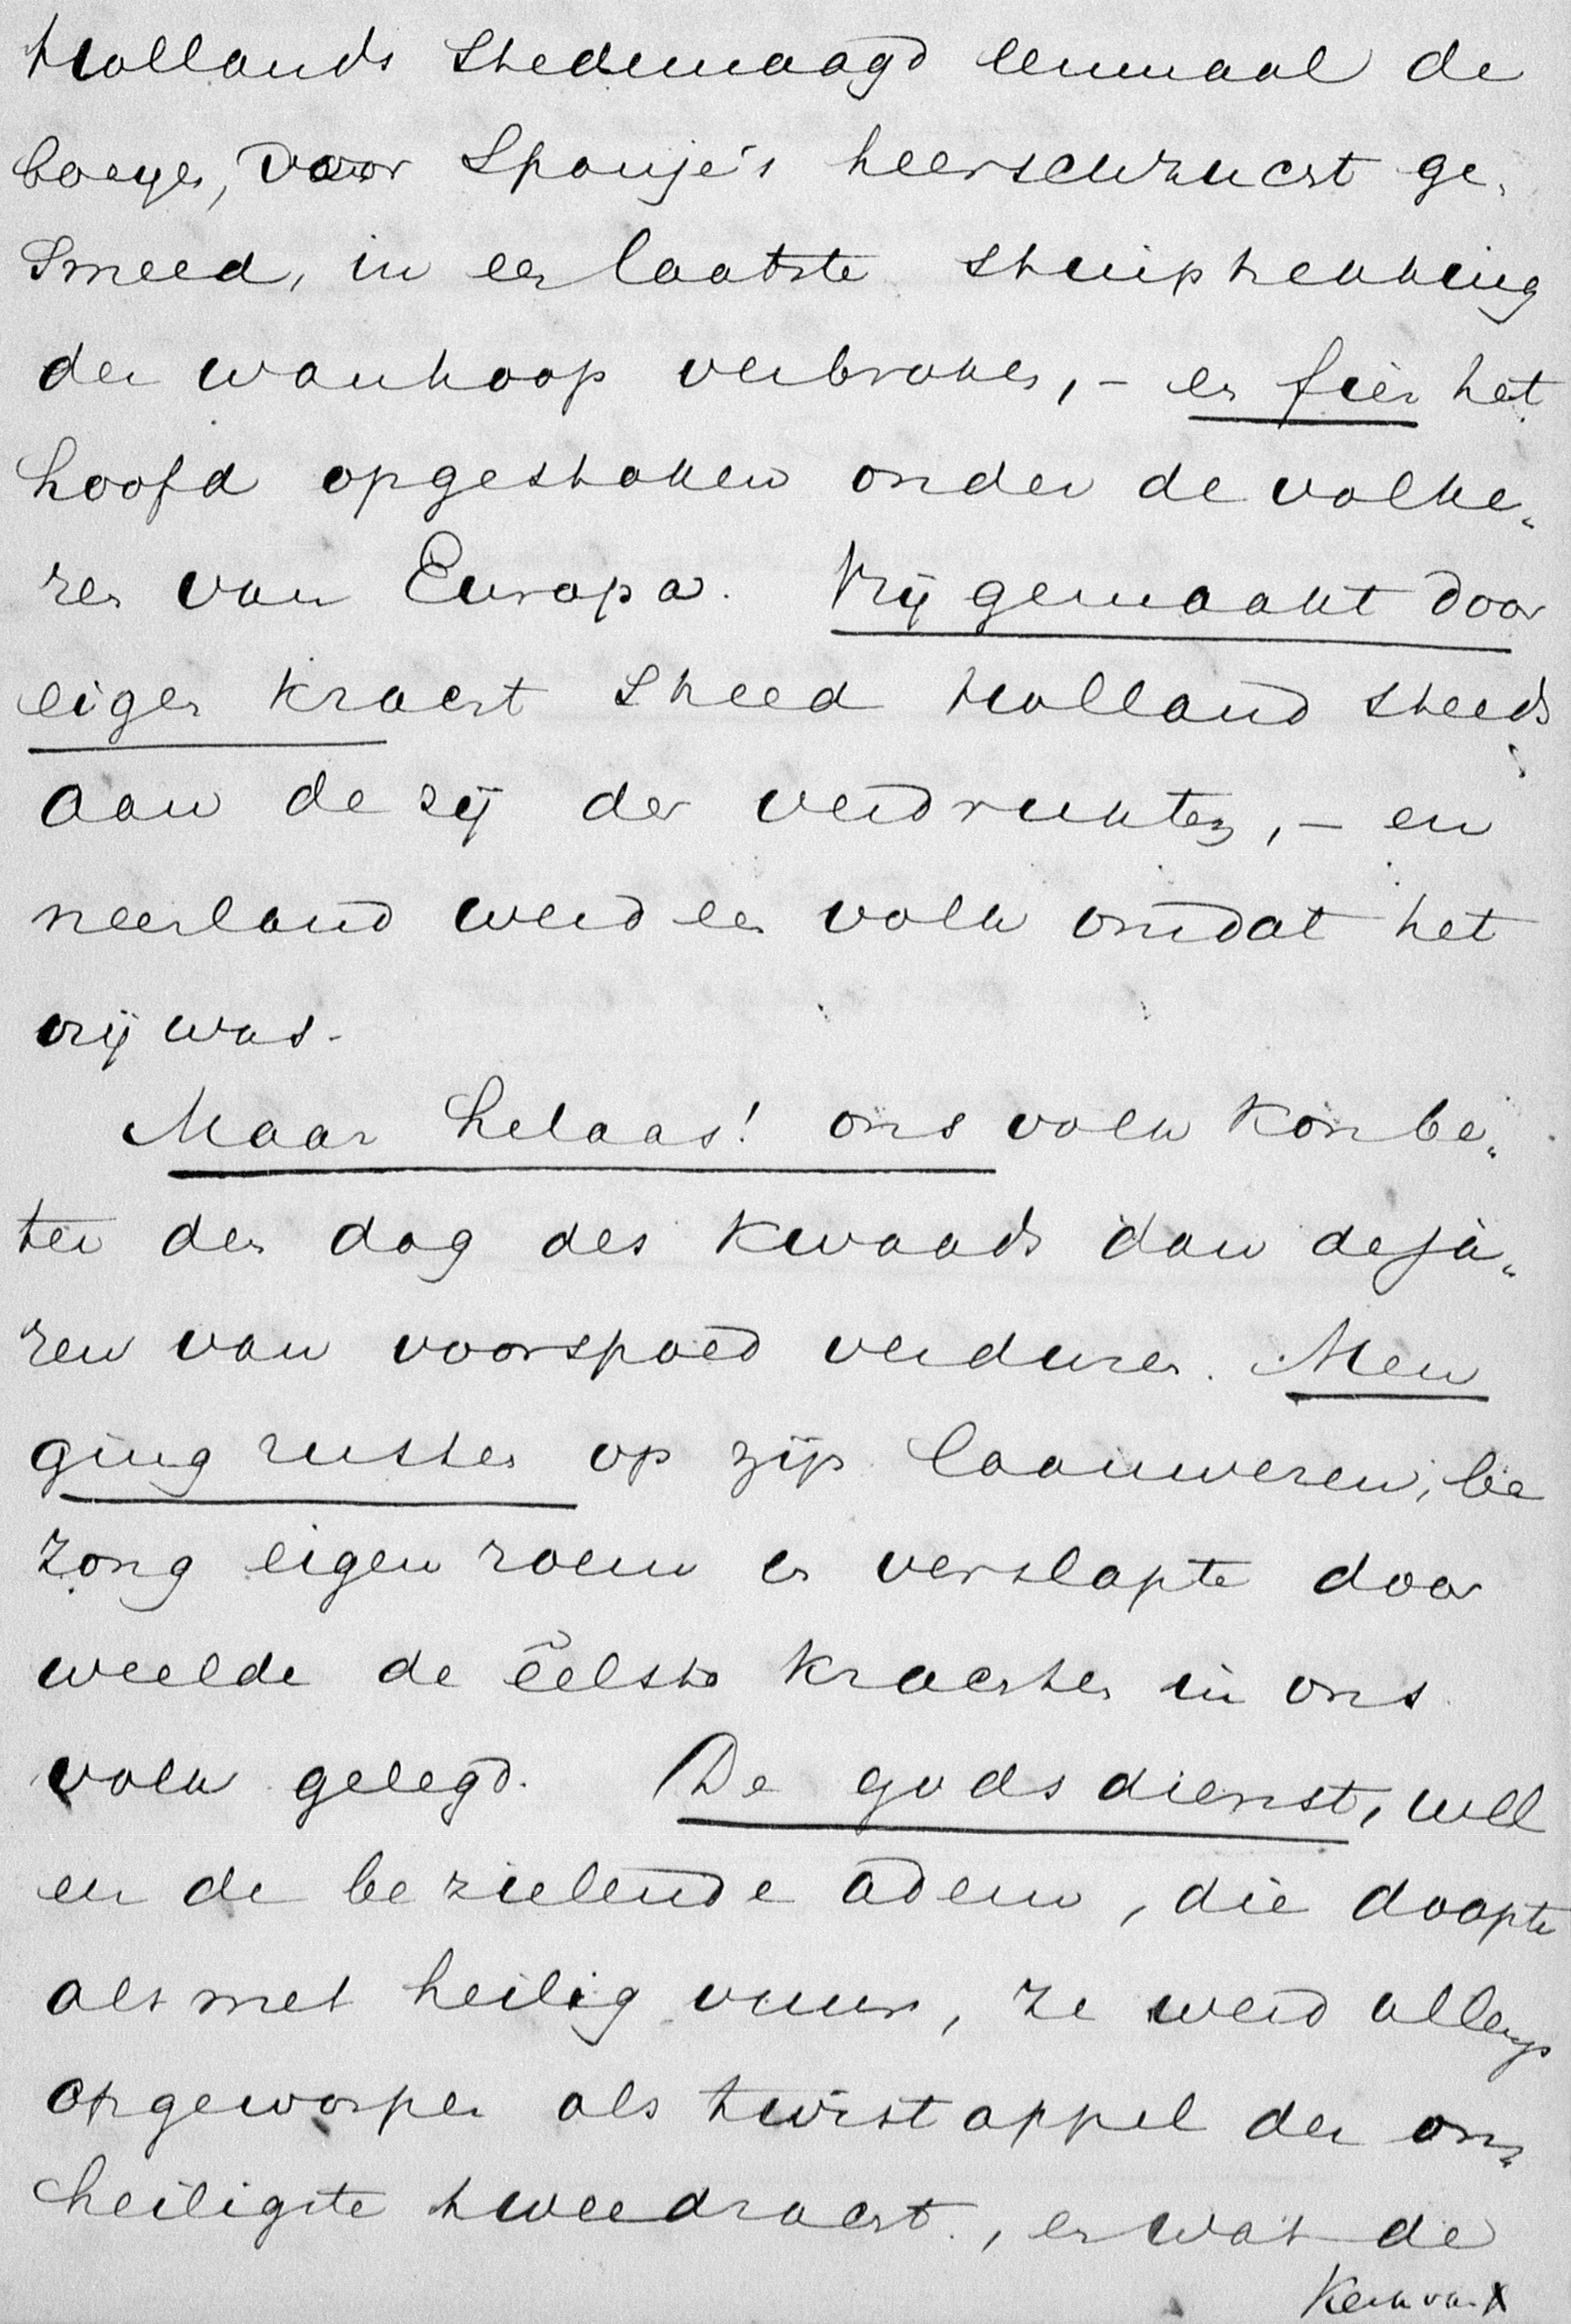 Hollands Stedemaagd eenmaal de
boeyen, door Spanje's heerschzucht ge„
smeed, in een laatste stuiptrekking
der wanhoop verbroken, – en fier het
hoofd opgestoken onder de volke„
ren van Europa. Vrij gemaakt door
eigen kracht streed Holland steeds
aan de zij der verdrukten, – en
neerland werd een volk omdat het
vrij was.
Maar helaas! ons volk kon be„
ter den dag des kwaads dan de ja„
ren van voorspoed verduren. Men
ging rusten op zijn laauweren, be
zong eigen roem en verslapte door
weelde de eêlste krachten in ons
volk gelegd. De godsdienst, wel
eer de bezielende adem, die doopte
als met heilig vuur, ze werd allengs
opgeworpen als twistappel der on„
heiligste tweedracht, en wat de
Kerk van